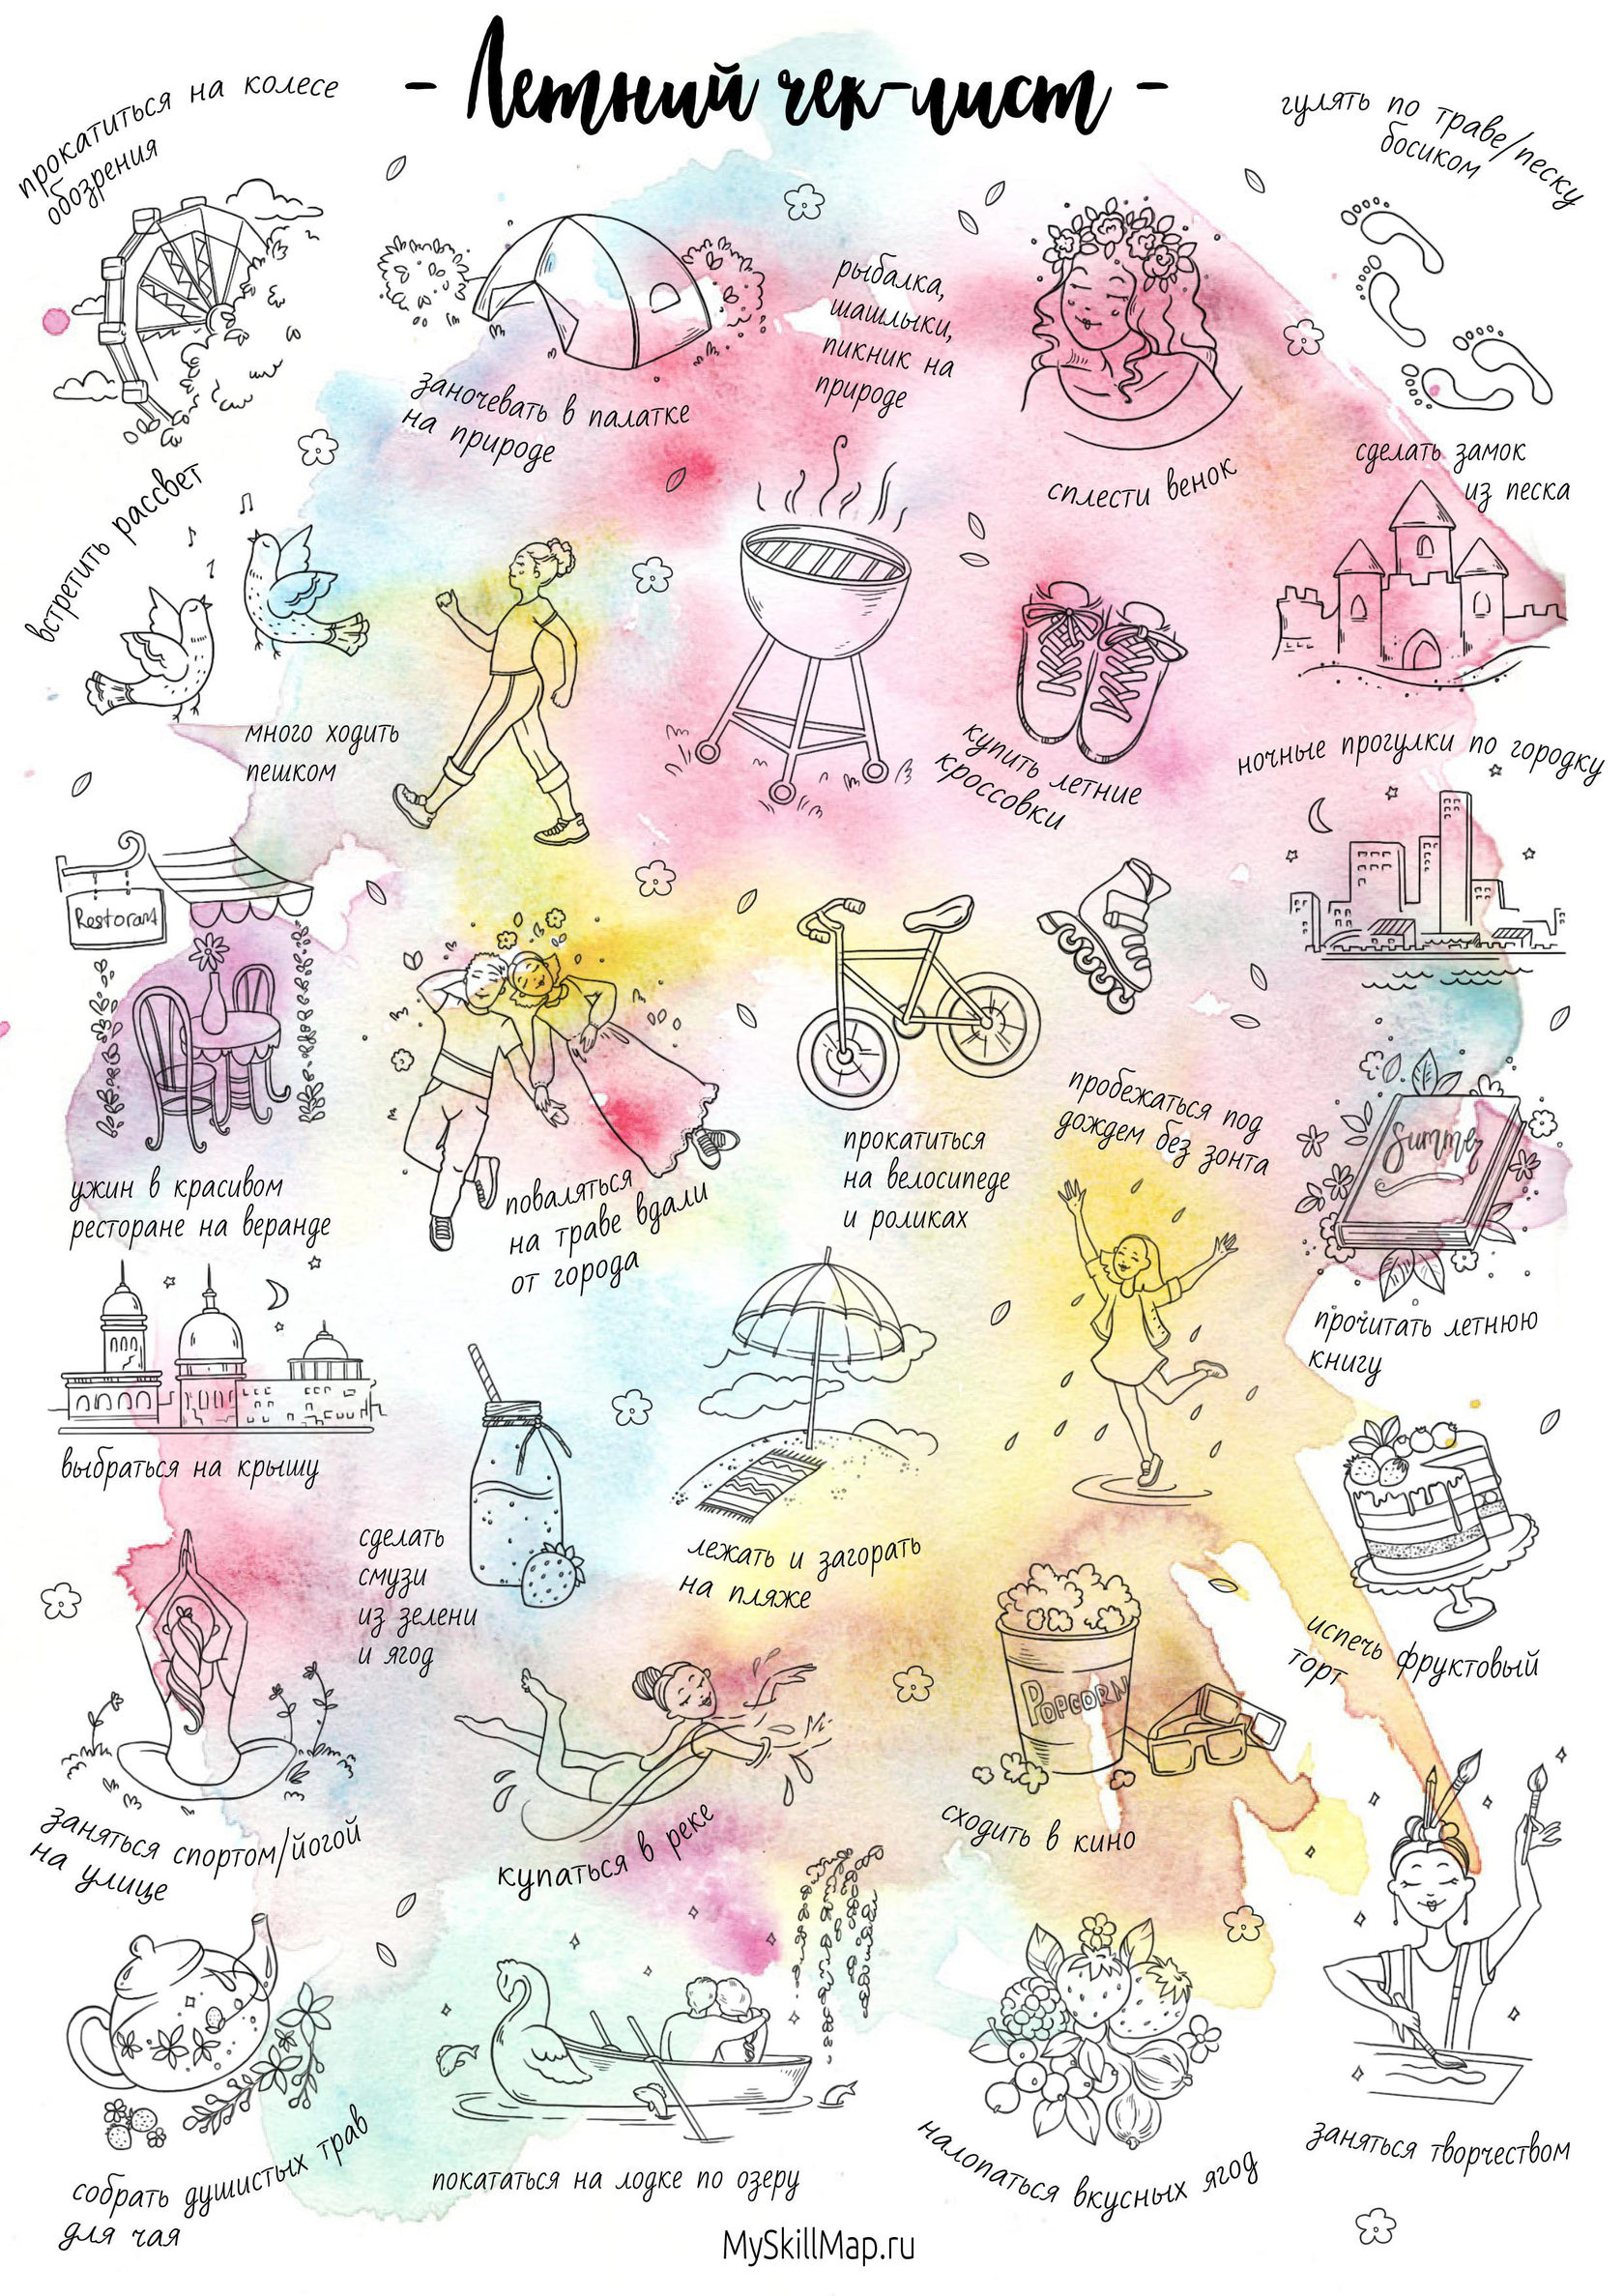 - Летний чек-лист -
прокатиться на колесе
обозрения
гулять по траве/песку
босиком
заночевать в палатке
на природе
рыбалка,
шашлыки,
пикник на
природе
сплести венок
сделать замок
из песка
встретить рассвет
много ходить
пешком
купить летние
кроссовки
ночные прогулки по городку
Restorant
ужин в красивом
ресторане на веранде
поваляться
на траве вдали
от города
прокатиться
на велосипеде
и роликах
пробежаться под
дождем без зонта
Summer
прочитать летнюю
книгу
выбраться на крышу
сделать
смузи
из зелени
и ягод
лежать и загорать
на пляже
испечь фруктовый
торт
заняться спортом/йогой
на улице
купаться в реке
POPCORN
сходить в кино
собрать душистых трав
для чая
покататься на лодке по озеру
налопаться вкусных ягод
заняться творчеством
MySkillMap.ru